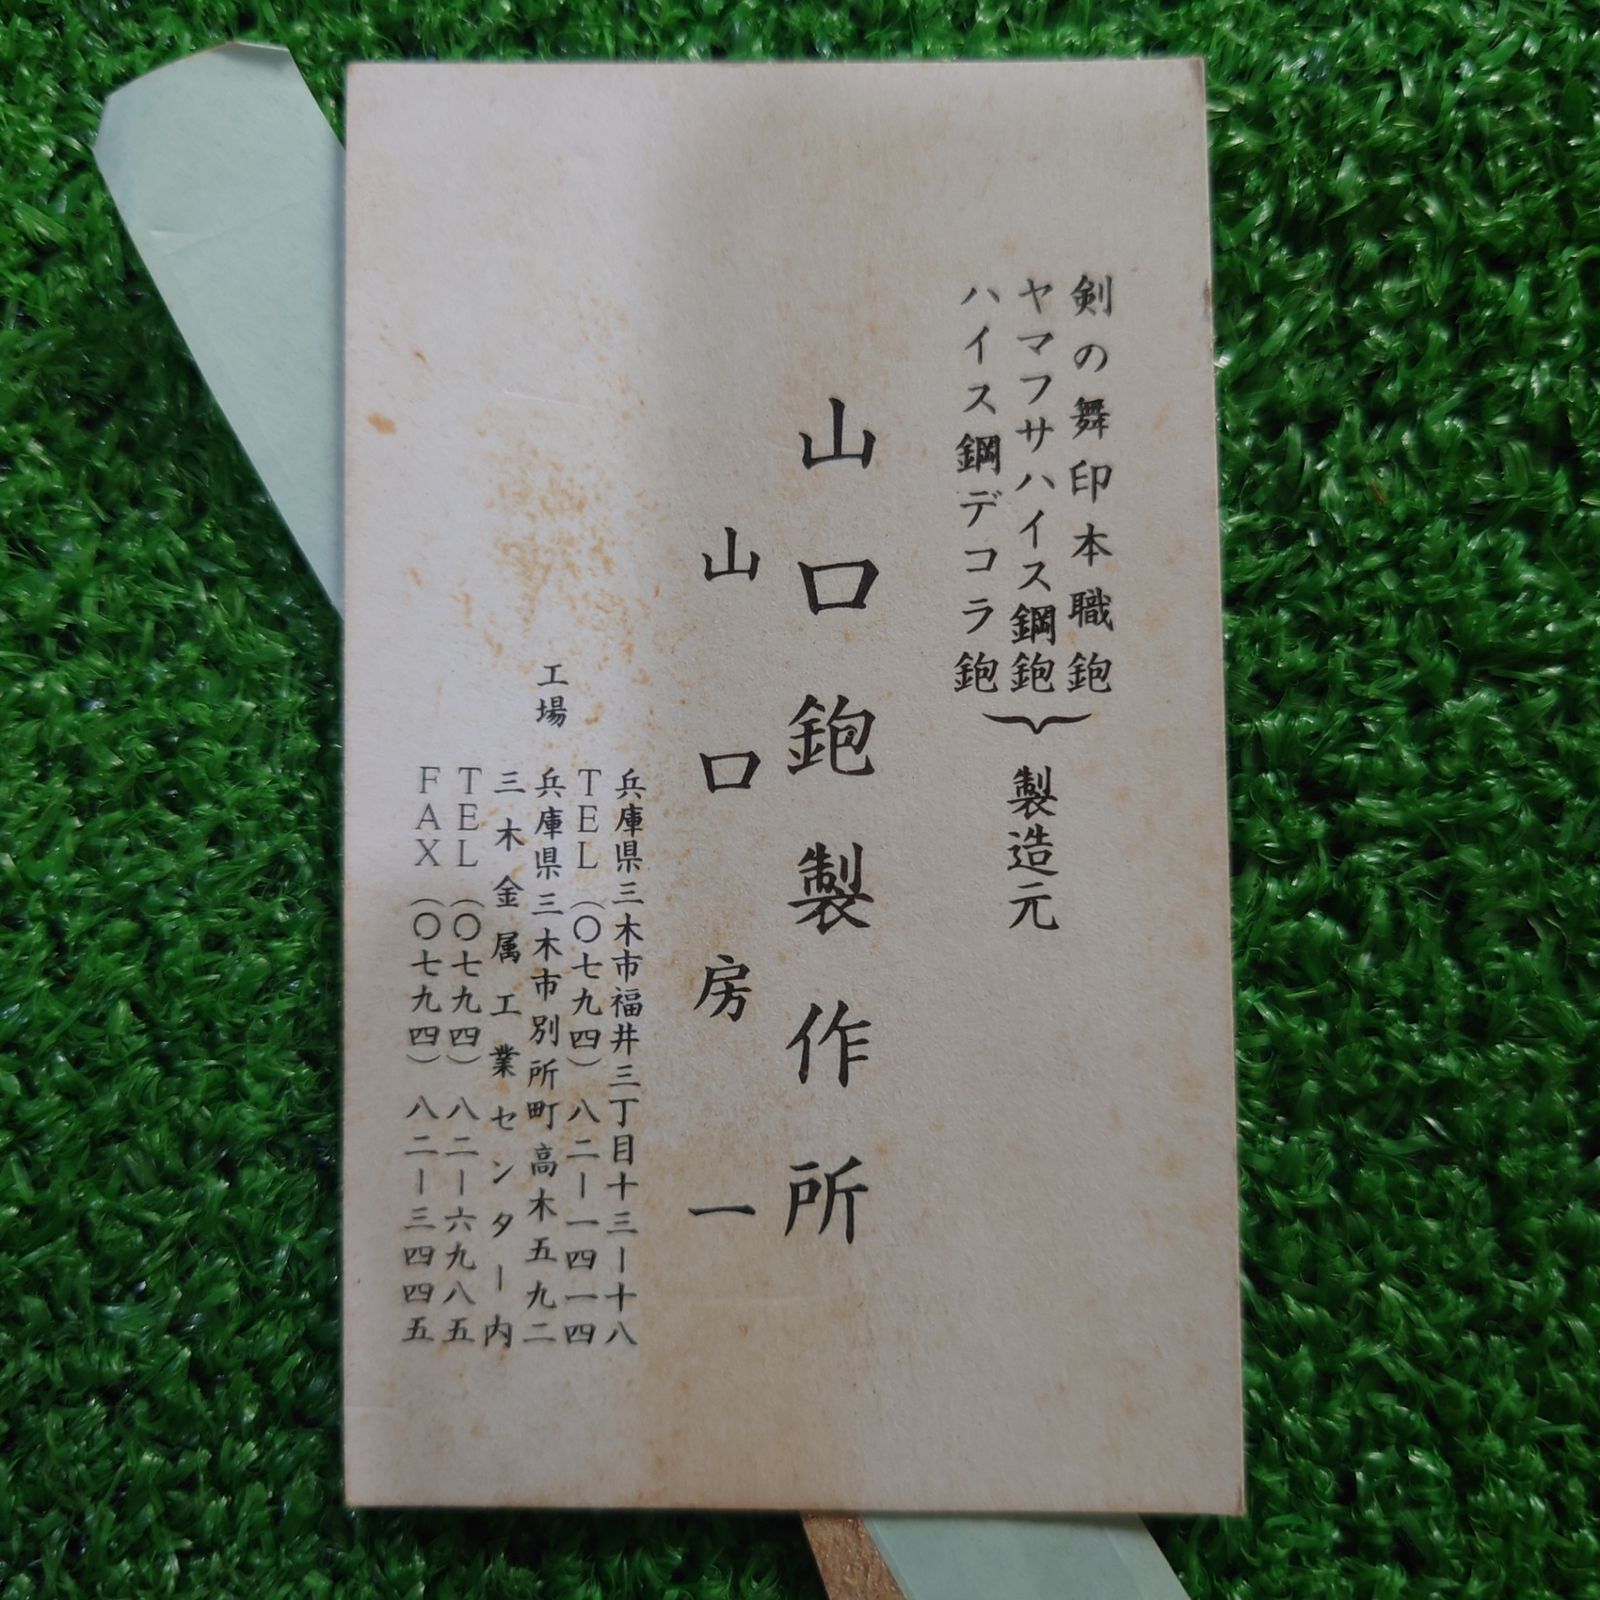 剣の舞印本職鉋
ヤマフサハイス鋼鉋
ハイス鋼デコラ鉋
製造元
山口鉋製作所
山口房一
兵庫県三木市福井三丁目十三ー十八
TEL(〇七九四)八二ー一四一四
工場 兵庫県三木市別所町高木五九二
三木金属工業センター内
TEL(〇七九四)八二ー六九八五
FAX(〇七九四)八二ー三四四五